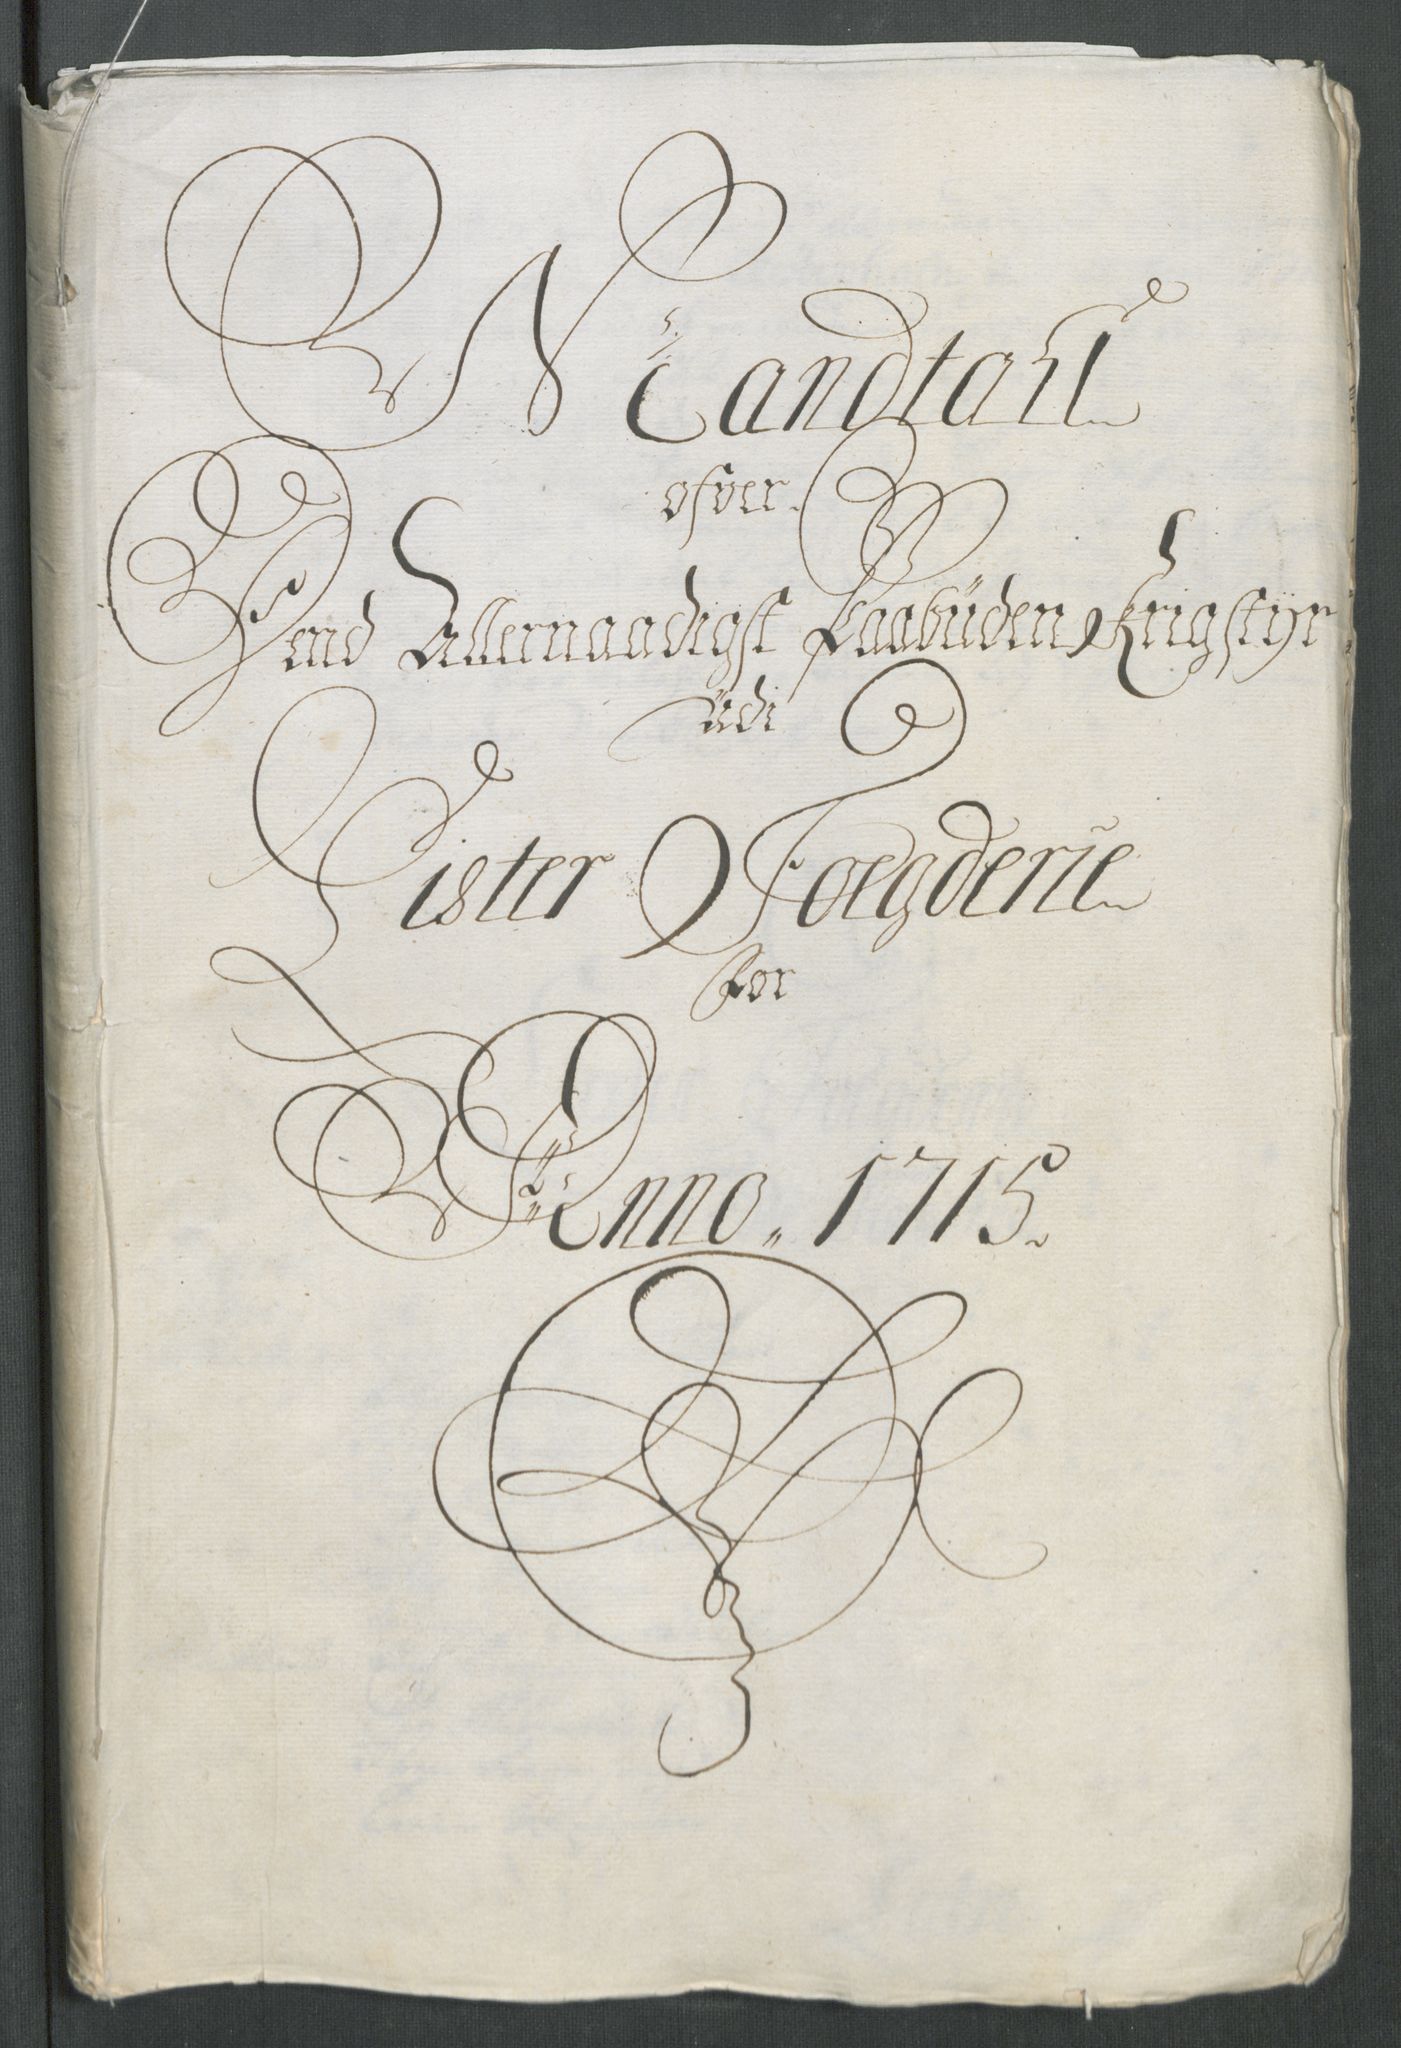 Mandtall
ofver
Dend Allernaadigst Paabüden Krigstyr
üdi
Lister Foegderie
for
Anno 1715.